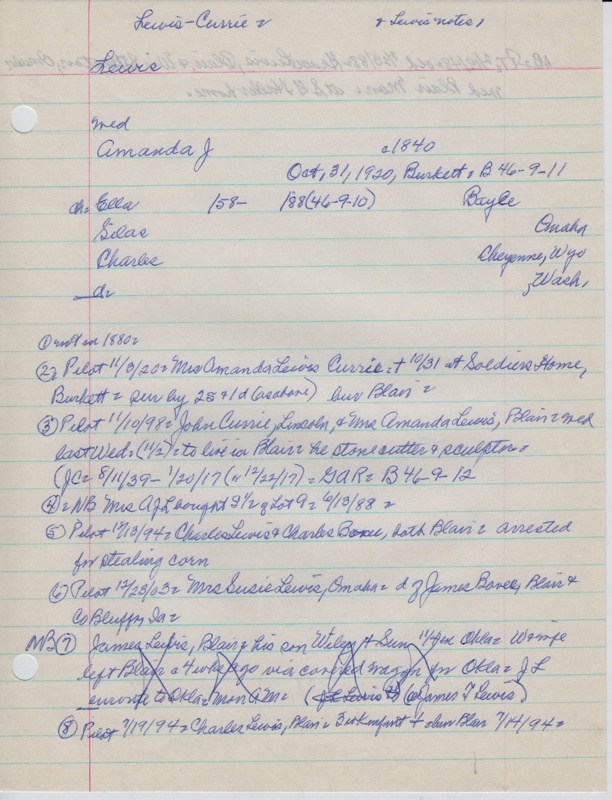 Lewis-Currie & Lewis notes,
Lewis
med
Amanda J c1840
Oct, 31, 1920, Burkett = B 46-9-11
ch= Ella 1/58- 1/88 (46-9-10) Bayle
Silas Omaha
Charles Cheyenne, Wyo
d= , Wash,
① not in 1880=
② Pilot 11/3/20= Mrs Amanda Lewis Currie = + 10/31 at Soldiers Home,
Burkett = sur by 2s + 1d (as above) bur Blair =
③ Pilot 11/10/98= John Currie, Lincoln, & Mrs Amanda Lewis, Blair = med
last Wed= (11/2) = to live in Blair = he stone cutter & sculptor=
(JC= 8/11/39- 1/20/17 (or 12/22/17) = GAR= B 46-9-12
④ = NB Mrs A J L bought S 1/2 of Lot 9 = 6/13/88 =
⑤ Pilot 12/13/94= Charles Lewis & Charles , both Blair = arrested
for stealing corn
⑥ Pilot 12/23/03= Mrs Susie Lewis, Omaha = d of James , Blair &
Co Bluffs, Ia=
NB ⑦ James Lewis, Blair = his son + Sun 11/4 in Okla=
left Blair a 4 wks ago via covered wagon for Okla= J L
enroute to Okla= Mon AM= (James T Lewis)
⑧ Pilot 7/19/94= Charles Lewis, Blair = 3 wk infant + = bur Blair 7/14/94=